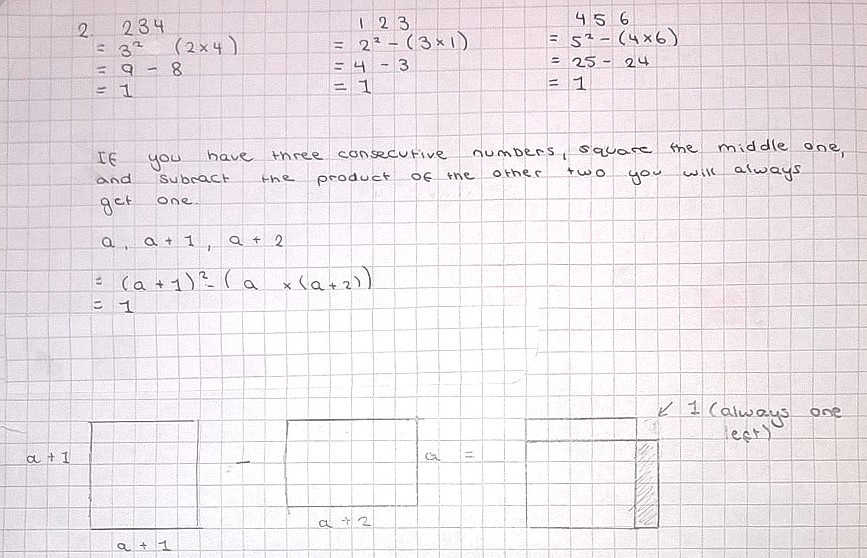 2. 2 3 4
= 3² (2×4)
= 9 - 8
= 1
1 2 3
= 2² - (3×1)
= 4 - 3
= 1
4 5 6
= 5² - (4×6)
= 25 - 24
= 1
If you have three consecutive numbers, square the middle one,
and subract the product of the other two you will always
get one.
a, a + 1, a + 2
= (a + 1)² - (a × (a + 2))
= 1
a + 1
a + 1
-
a
a + 2
=
↙ 1 (always one
left)